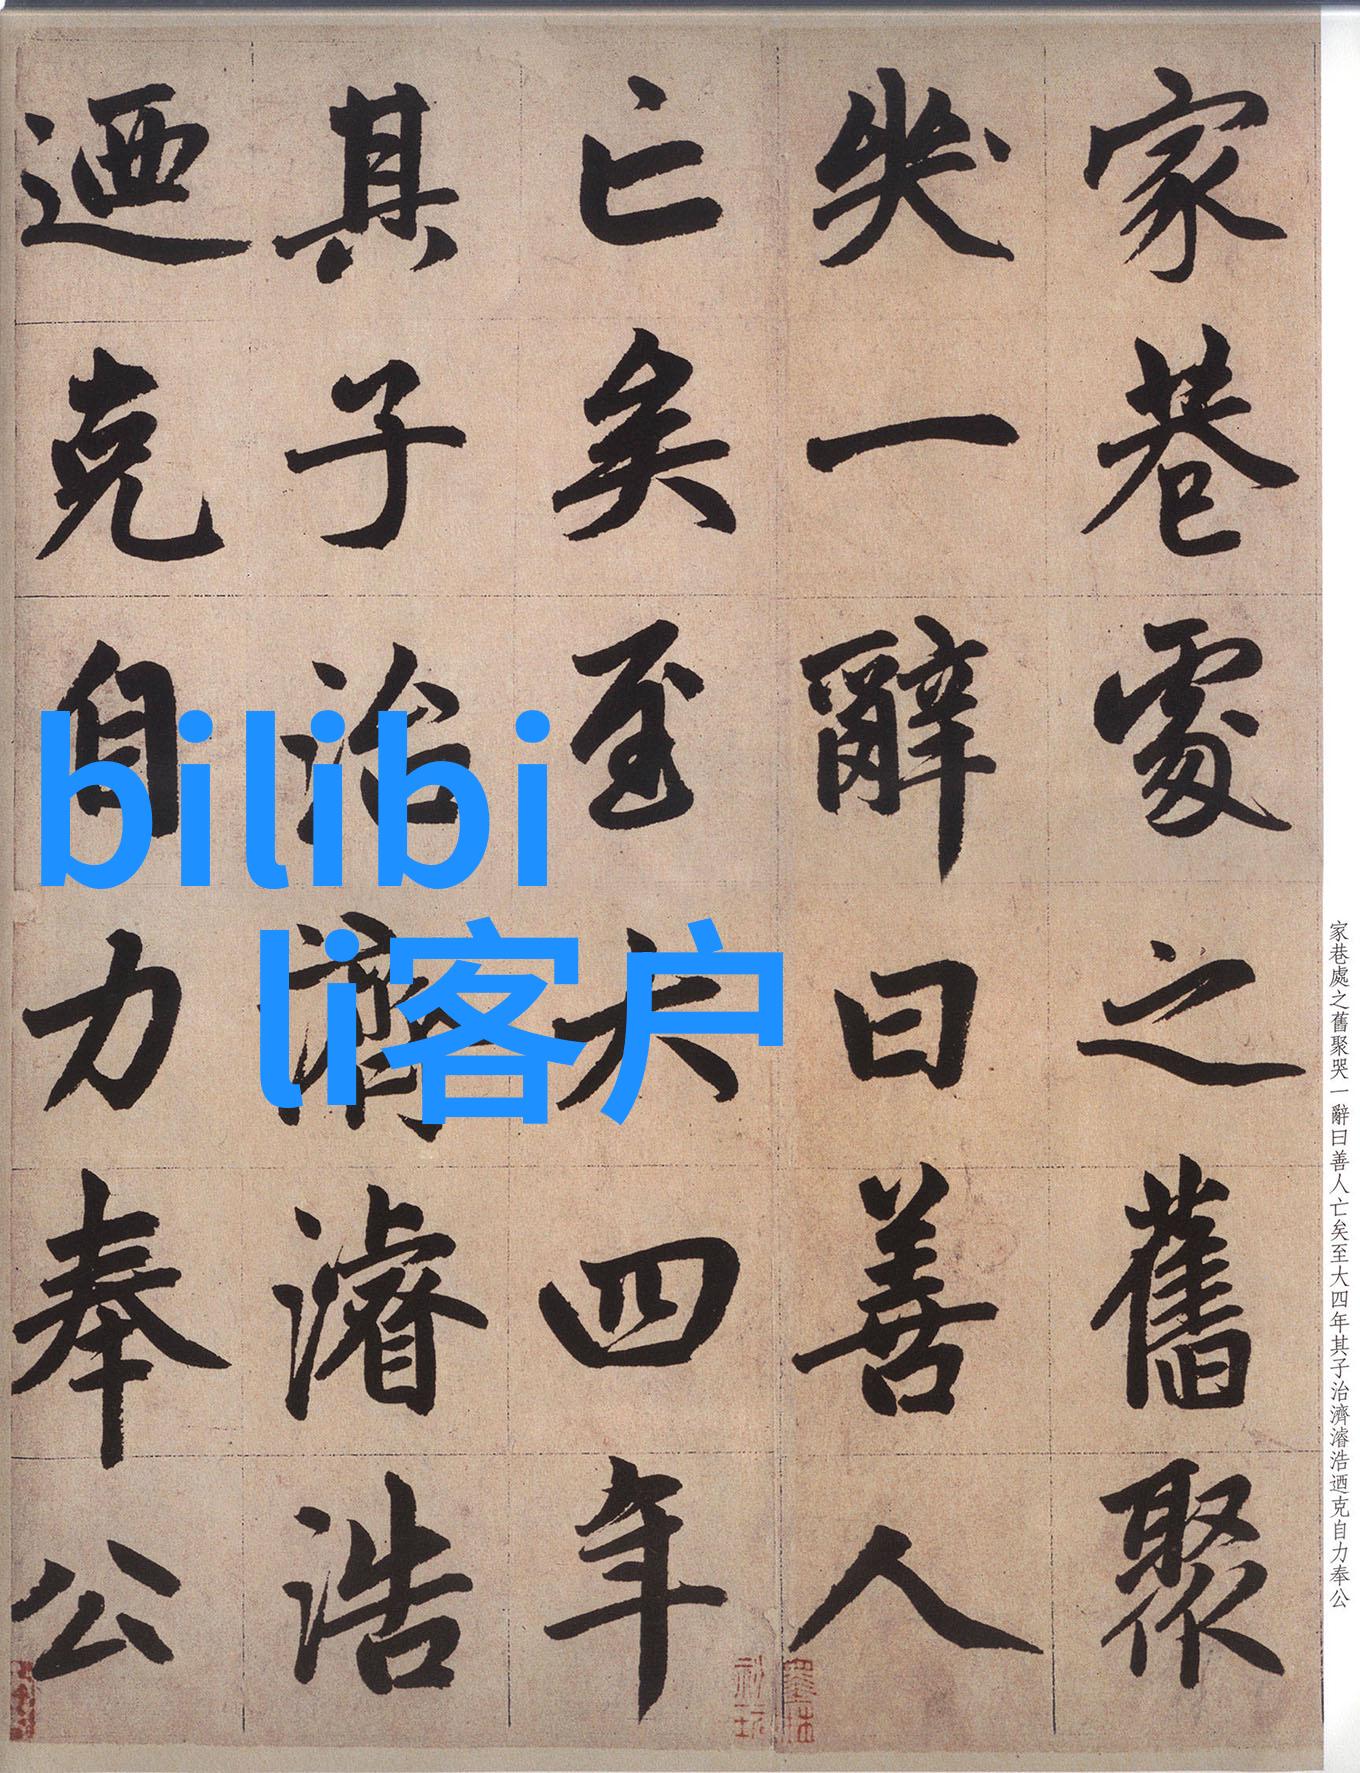 家巷處之舊聚
哭一辭曰善人
亡矣至大四年
其子治濟濬浩
迺克自力奉公
bilibi
li客户
家巷處之舊聚哭一辭曰善人亡矣至大四年其子治濟濬浩迺克自力奉公